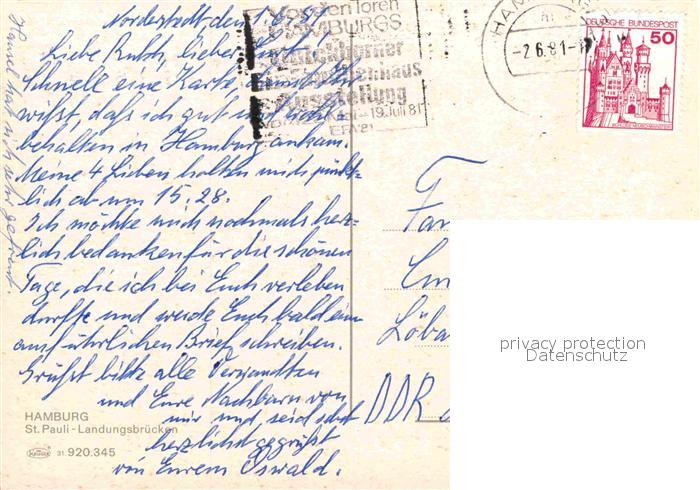 Norderstedt, den 1.6.81
Liebe Ruth, lieber Kurt!
Schnelle eine Karte, damit Ihr
wißt, daß ich gut und
behalten in Hamburg ankam.
Meine 4 Lieben holten mich pünkt-
lich ab um 15,28.
Ich möchte mich nochmals herz-
lich bedanken für die schönen
Tage, die ich bei Euch verleben
durfte und werde Euch bald einen
ausführlichen Brief schreiben.
Grüßt bitte alle Verwandten
und Eure Nachbarn von
mir und, seid selbst
herzlichst gegrüßt
von Eurem Oswald.
Hansel hat sich sehr gefreut.
HAMBURG
St. Pauli - Landungsbrücken
Krüger 31 920.345
Vor den Toren
HAMBURGS
Quickborner
haus
Ausstellung
- 19. Juli 81
HAM
-2.6.81-1
DEUTSCHE BUNDESPOST
50
SCHLOSS NEUSCHWANSTEIN
Fam
Löba
DDR
privacy protection
Datenschutz